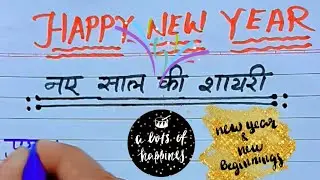 HAPPY NEW YEAR
नए साल की शायरी
a lots of
happines
new year
&
new
beginnings